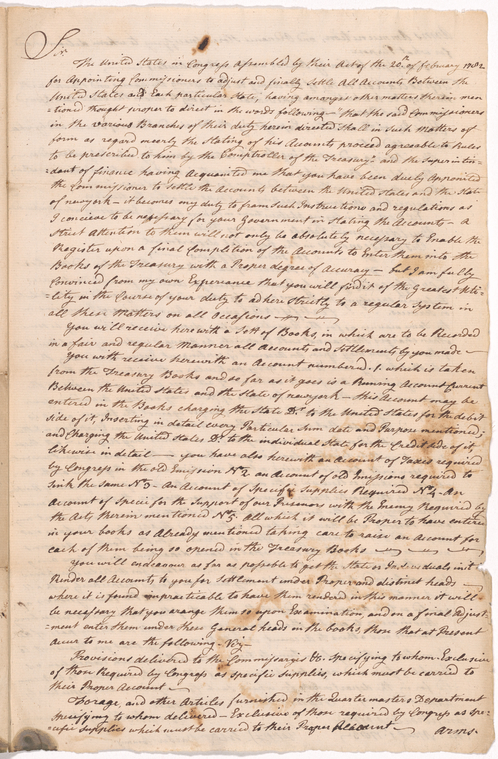 Sir
The United States in Congress assembled by their Act of the 20th of February 1782
for Appointing Commissioners to adjust and finally Settle All Accounts Between the
United States and Each particular State, having amongst other matters therein men
=tioned thought proper to direct in the words following - that the said Commissioners
in the various Branches of their duty herein directed Shall in Such Matters of
form as regard meerly the Stating of his Accounts proceed agreeable to Rules
to be prescribed to them by the Comptroller of the Treasury - and the Superinten=
=dant of finance having Acquainted me that you have been duely Appointed
the Commissioner to Settle the Accounts between the United States and the State
of newyork - it becomes my duty to fram Such Instructions and regulations as
I conceive to be necessary for your Government in Stating the Accounts - a
Strict Attention to them will not only be absolutely necessary to Enable the
Register upon a final Completion of the Accounts to Enter them into the
Books of the Treasury with a Proper degree of Accuracy - but I am fully
Convinced from my own Experience that you will find it of the Greatest Utili
=tity in the Course of your duty to adhere Strictly to a regular System in
all these Matters on all Occassions
You will receive herewith a Sett of Books, in which are to be Recorded
in a fair and regular Manner all Accounts and Settlements by you made
You with receive herewith an Account numbered 1. which is taken
from the Treasury Books and so far as it goes is a Runing Account Current
Between the United States and the State of newyork - this Account may be
entered in the Books charging the State Dr. to the United States for the debit
Side of it, Inserting in detail every Particular Sum date and Purpose mentioned;
and Charging the United States Dr. to the individual State for the Credit Side of it,
likewise in detail - you have also herewith an Account of Taxes required
by Congress in the old Emission No 2 an Account of old Emissions required to
Sink the Same No 3 - An Account of Specific Supplies Required No 4 - An
Account of Specie for the Support of our Prisoners with the Enemy Required by
the Acts therein mentioned No 5. All which it will be Proper to have entered
in your books as Already mentioned taking care to raise an Account for
each of them being so opened in the Treasury Books
You will endeavour as far as possable to get the State or Individuals in it
Render all Accounts to you for Settlement under Proper and distinct heads
where it is found impracticable to have them rendered in this manner it will
be necessary that you arange them so upon Examination, and on a final adjust=
=ment enter them under these General heads in the books, thos that at Present
Accur to me are the following Viz.
Provisions delivered to the Commissarys &c Specifying to whom - Exclusive
of thos Required by Congress as specific Supplies which must be carried to
their Proper Account
Forage, and other Articles furnished in the Quartermasters Department
Specifying to whom delivered - Exclusive of thos required by Congress as spe=
=cific Supplies which must be carried to their Proper Account
Arms.